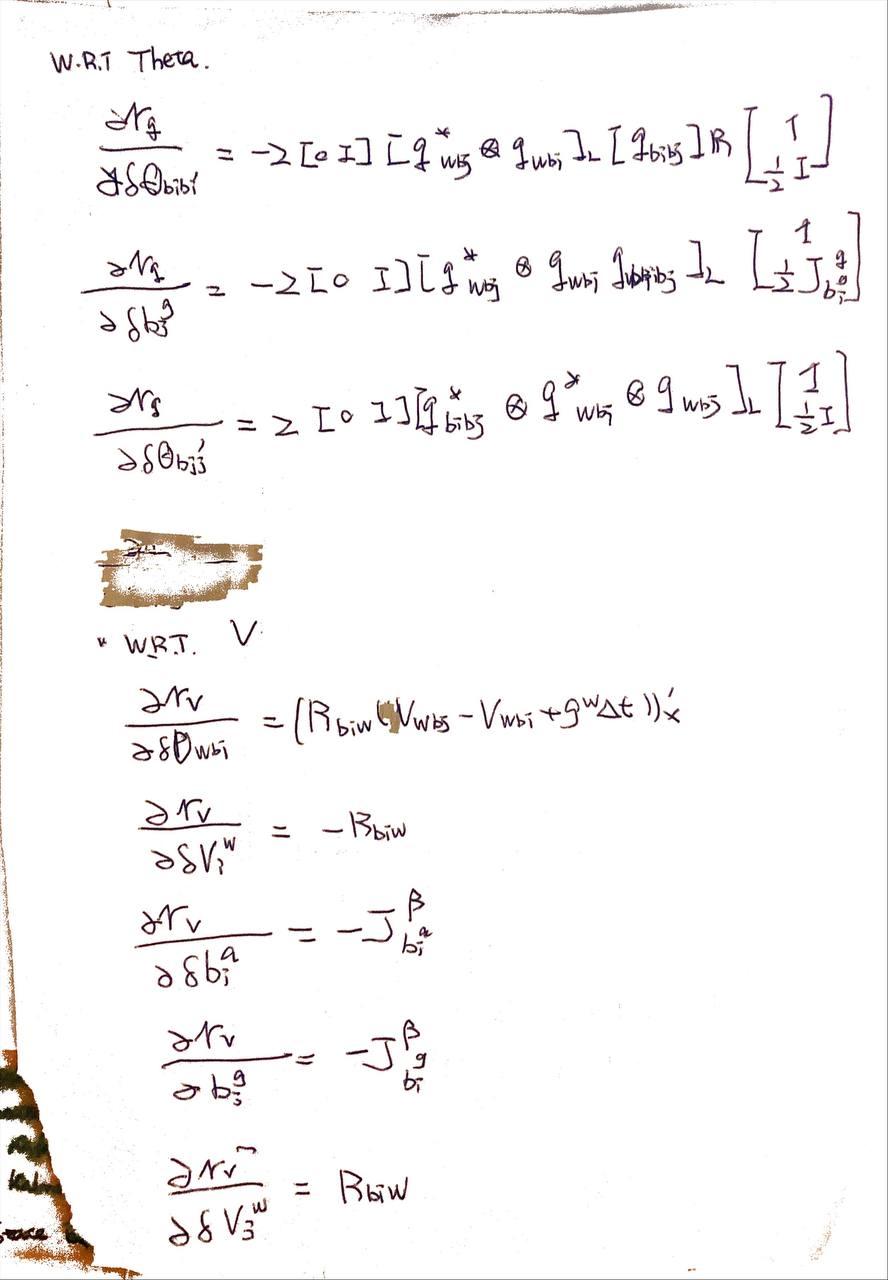 W.R.T Theta.
∂r_q / ∂δθ_{bibi'} = -2 [0 I] [q^*_{wbj} ⊗ q_{wbi}]_L [q_{bibj}]_R [1; ½ I]
∂r_q / ∂δb_i^g = -2 [0 I] [q^*_{wbj} ⊗ q_{wbi} q_{bibj}]_L [1; ½ J^q_{b_i^g}]
∂r_q / ∂δθ_{bjj'} = 2 [0 I] [q^*_{bibj} ⊗ q^*_{wbi} ⊗ q_{wbj}]_L [1; ½ I]
* W.R.T. V
∂r_v / ∂δθ_{wbi} = (R_{biw} (V_{wbj} - V_{wbi} + g^w Δt))^'_x
∂r_v / ∂δV_i^w = -R_{biw}
∂r_v / ∂δb_i^a = -J^β_{b_i^a}
∂r_v / ∂b_i^g = -J^β_{b_i^g}
∂r_v / ∂δV_j^w = R_{biw}